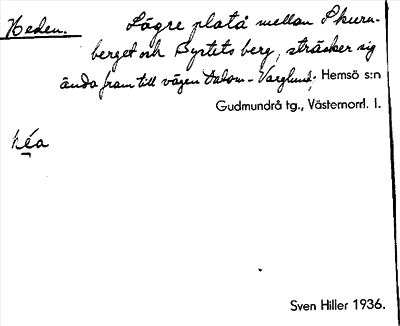 Heden. Lägre platå mellan Skuru-
berget och Byttets berg, sträcker sig
ända fram till vägen Utlom - Varglund; Hemsö s:n
Gudmundrå tg., Västernorrl. l.
hé̱a
Sven Hiller 1936.